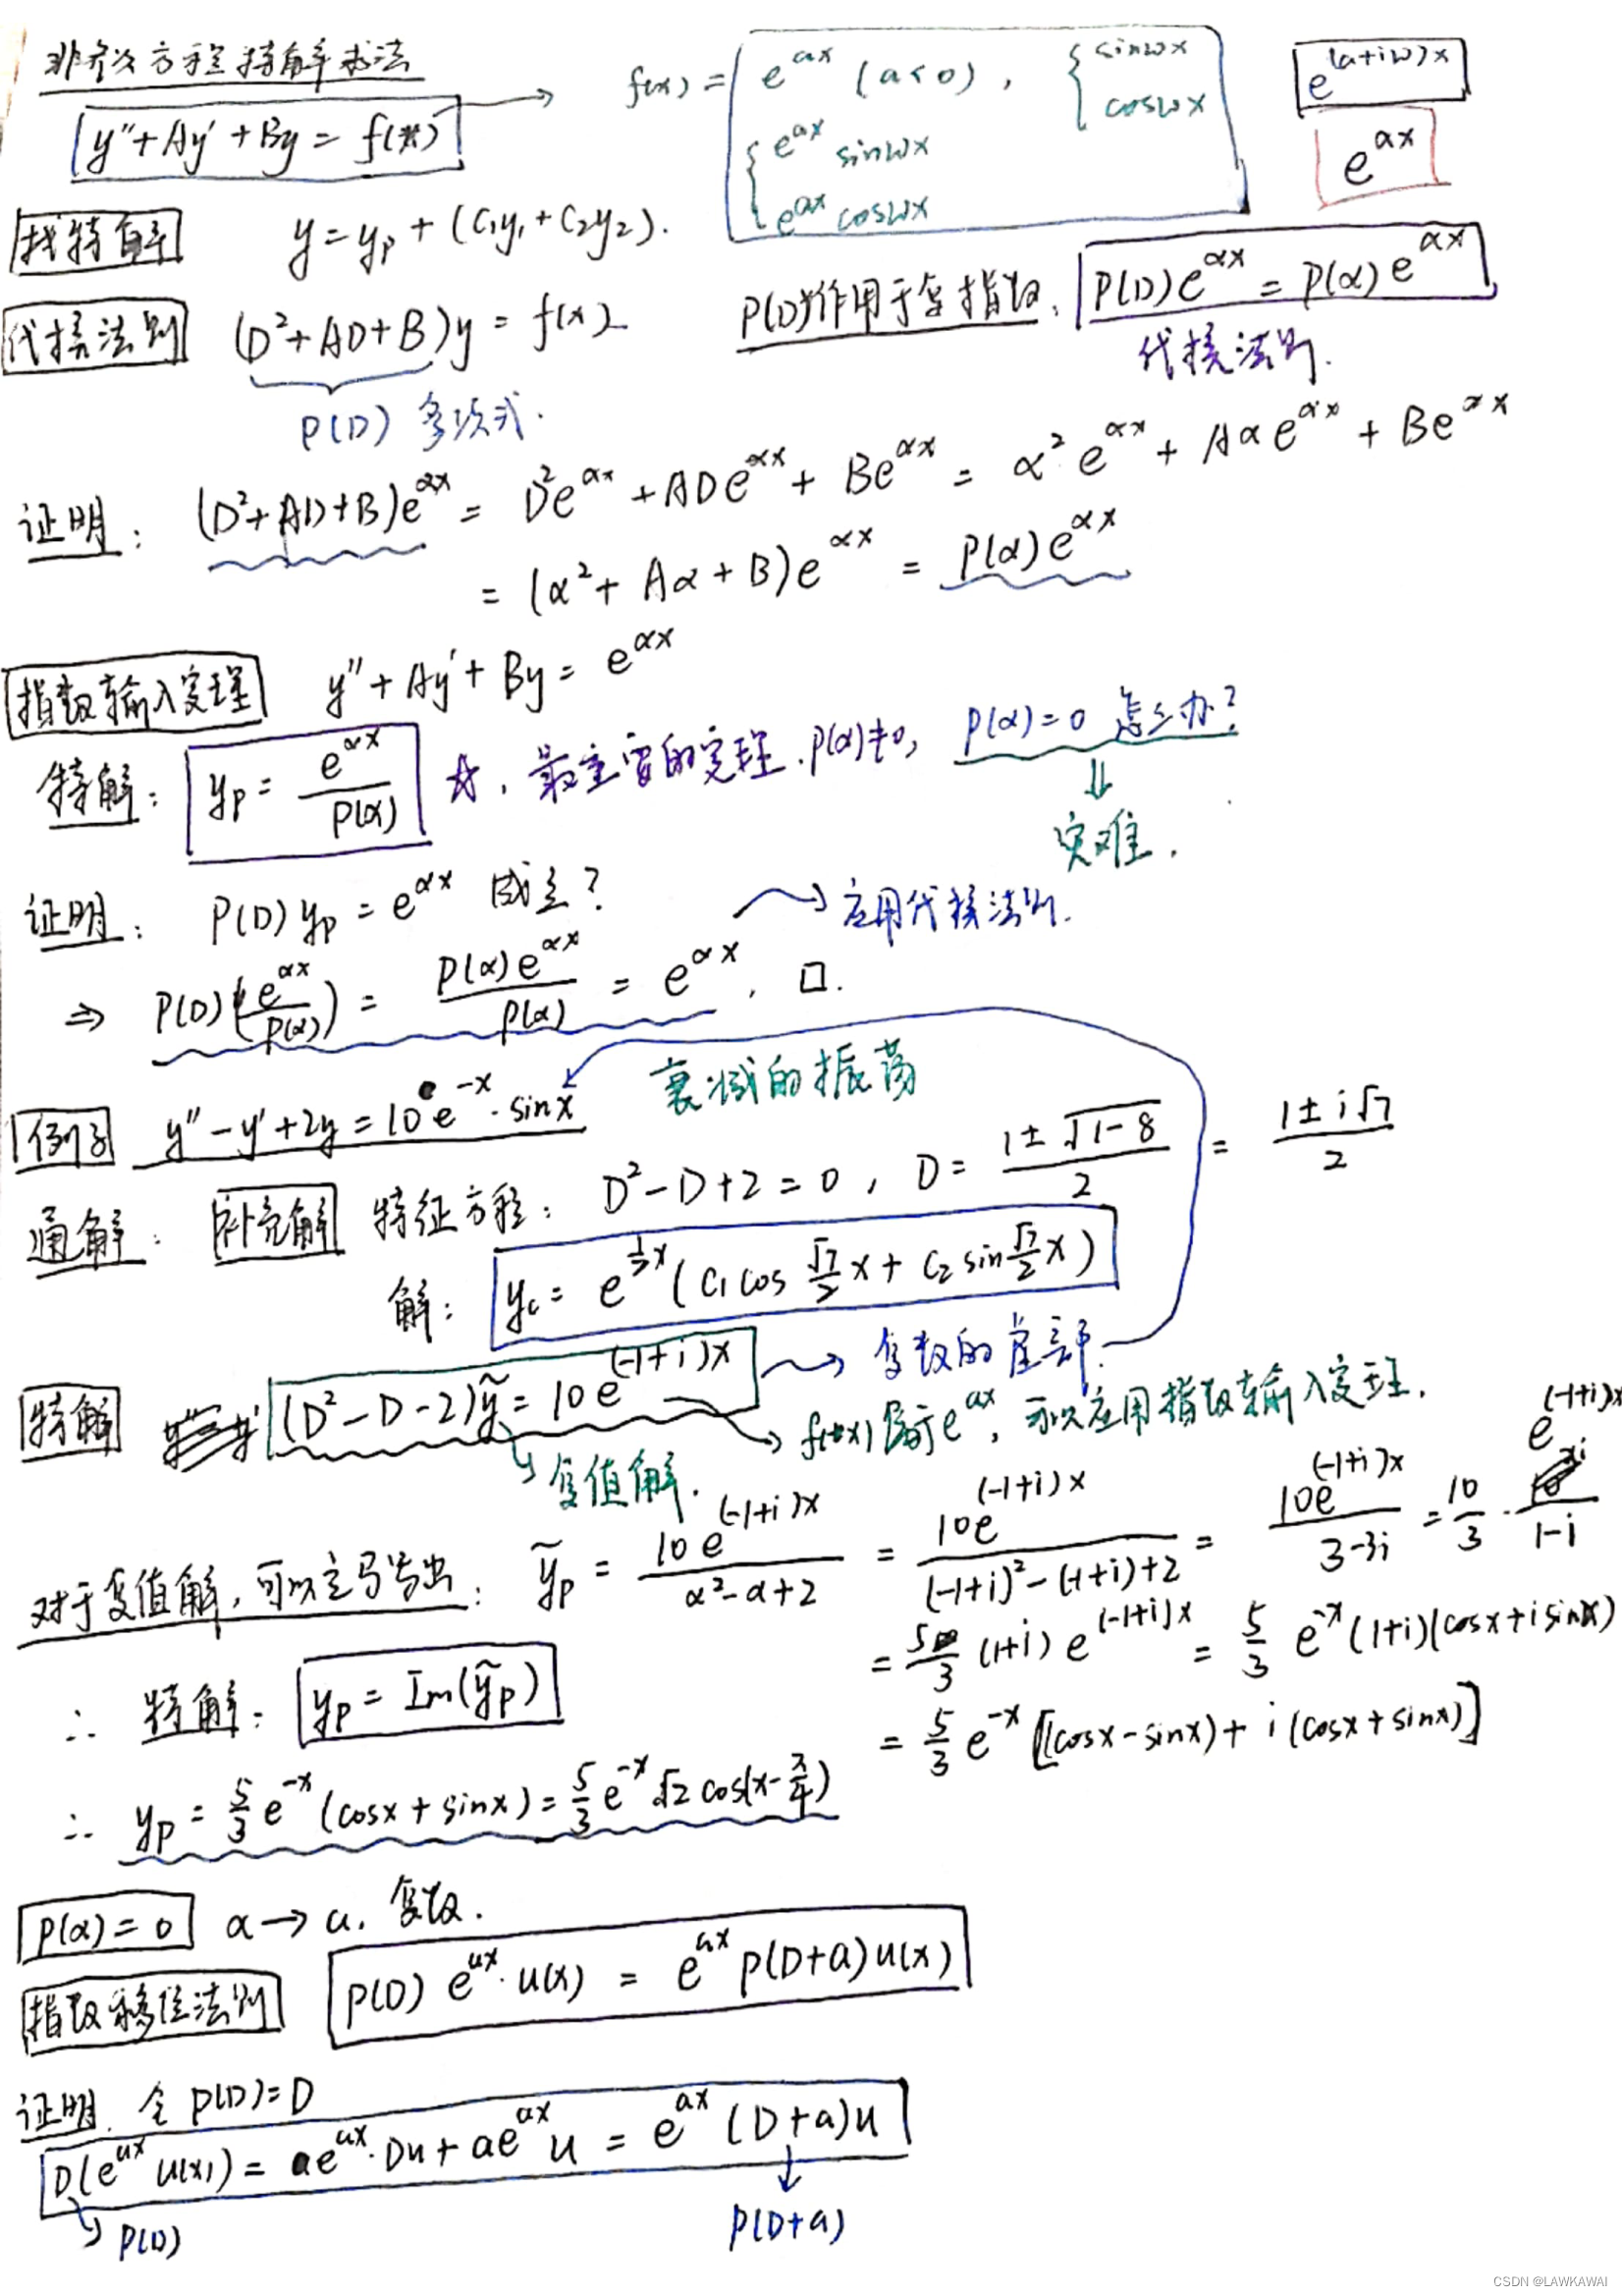 非齐次方程特解求法
y'' + Ay' + By = f(x) → f(x) = e^{ax} (a<0), { sinωx cosωx
{ e^{ax} sinωx e^{ax} cosωx
e^{(a+iω)x}
e^{αx}
找特解 y = y_p + (C₁y₁ + C₂y₂).
代换法则 (D² + AD + B)y = f(x)
P(D) 多项式.
P(D)作用于复指数, P(D)e^{αx} = P(α)e^{αx}
代换法则.
证明: (D² + AD + B)e^{αx} = D²e^{αx} + ADe^{αx} + Be^{αx} = α²e^{αx} + Aαe^{αx} + Be^{αx}
= (α² + Aα + B)e^{αx} = P(α)e^{αx}
指数输入定理 y'' + Ay' + By = e^{αx}
特解: y_p = e^{αx}/P(α) ☆, 最重要的定理. P(α)≠0, P(α)=0 怎么办?
⇓
灾难.
证明: P(D)y_p = e^{αx} 成立?
→ 应用代换法则.
⇒ P(D)(e^{αx}/P(α)) = P(α)e^{αx}/P(α) = e^{αx}, □.
例子 y'' - y' + 2y = 10e^{-x}·sinx 衰减的振荡
通解: 补充解 特征方程: D² - D + 2 = 0, D = (1±√(1-8))/2 = (1±i√7)/2
解: y_c = e^{½x}(C₁cos (√7/2)x + C₂sin (√7/2)x)
特解 (D² - D - 2)ỹ = 10e^{(-1+i)x} → 复数的虚部.
→ f(x)属于e^{αx}, 可以应用指数输入定理.
→ 复值解.
对于复值解, 可以立马写出: ỹ_p = 10e^{(-1+i)x}/(α²-α+2) = 10e^{(-1+i)x}/((-1+i)²-(-1+i)+2) = 10e^{(-1+i)x}/(3-3i) = 10/3 · e^{(-1+i)x}/(1-i)
= 5/3 (1+i)e^{(-1+i)x} = 5/3 e^{-x}(1+i)(cosx+isinx)
∴ 特解: y_p = Im(ỹ_p)
= 5/3 e^{-x}[(cosx-sinx) + i(cosx+sinx)]
∴ y_p = 5/3 e^{-x}(cosx+sinx) = 5/3 e^{-x}√2cos(x-π/4)
P(α)=0 α → a, 复数.
指数移位法则 P(D) e^{ax}·u(x) = e^{ax}P(D+a)u(x)
证明. 令 P(D)=D
D(e^{ax}u(x)) = ae^{ax}·Du + ae^{ax}u = e^{ax}(D+a)u
→ P(D)
↓ P(D+a)
CSDN @LAWKAWAI